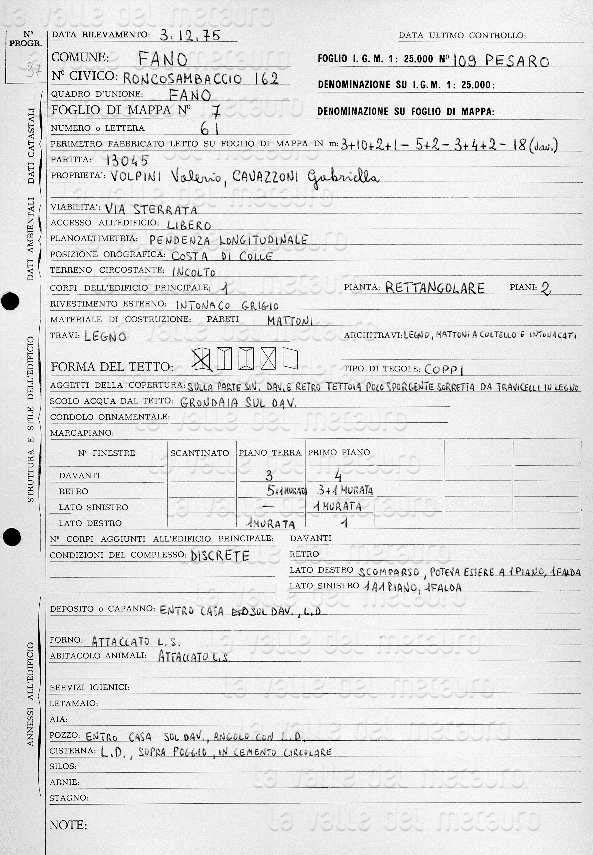 N° PROGR.
37
DATA RILEVAMENTO: 3.12.75 DATA ULTIMO CONTROLLO:
COMUNE: FANO FOGLIO I.G.M. 1: 25.000 N° 109 PESARO
N° CIVICO: RONCOSAMBACCIO 162 DENOMINAZIONE SU I.G.M. 1: 25.000:
QUADRO D'UNIONE: FANO
FOGLIO DI MAPPA N° 7 DENOMINAZIONE SU FOGLIO DI MAPPA:
NUMERO o LETTERA 61
PERIMETRO FABBRICATO LETTO SU FOGLIO DI MAPPA IN m: 3+10+2+1-5+2-3+4+2-18 (dav.)
PARTITA: 13045
PROPRIETA': VOLPINI Valerio, CAVAZZONI Gabriella
DATI AMBIENTALI DATI CATASTALI
VIABILITA': VIA STERRATA
ACCESSO ALL'EDIFICIO: LIBERO
PLANOALTIMETRIA: PENDENZA LONGITUDINALE
POSIZIONE OROGRAFICA: COSTA DI COLLE
TERRENO CIRCOSTANTE: INCOLTO
CORPI DELL'EDIFICIO PRINCIPALE: 1 PIANTA: RETTANGOLARE PIANI: 2
RIVESTIMENTO ESTERNO: INTONACO GRIGIO
MATERIALE DI COSTRUZIONE: PARETI MATTONI
TRAVI: LEGNO ARCHITRAVI: LEGNO, MATTONI A COLTELLO E INTONACATI
FORMA DEL TETTO: TIPO DI TEGOLE: COPPI
AGGETTI DELLA COPERTURA: SULLA PARTE SIN. DAV. E RETRO TETTOIA POCO SPORGENTE SORRETTA DA TRAVICELLI IN LEGNO
SCOLO ACQUA DAL TETTO: GRONDAIA SUL DAV.
CORDOLO ORNAMENTALE:
MARCAPIANO:
STRUTTURA E STILE DELL'EDIFICIO
N° FINESTRE SCANTINATO PIANO TERRA PRIMO PIANO
DAVANTI 3 4
RETRO 5+1 MURATA 3+1 MURATA
LATO SINISTRO – 1 MURATA
LATO DESTRO 1 MURATA 1
N° CORPI AGGIUNTI ALL'EDIFICIO PRINCIPALE: DAVANTI
CONDIZIONI DEL COMPLESSO: DISCRETE RETRO
LATO DESTRO SCOMPARSO, POTEVA ESSERE A 1 PIANO, 1 FALDA
LATO SINISTRO 1 A 1 PIANO, 1 FALDA
ANNESSI ALL'EDIFICIO
DEPOSITO o CAPANNO: ENTRO CASA SUL DAV., L.D.
FORNO: ATTACCATO L.S.
ABITACOLO ANIMALI: ATTACCATO L.S.
SERVIZI IGIENICI:
LETAMAIO:
AIA:
POZZO: ENTRO CASA SUL DAV., ANGOLO CON L.D.
CISTERNA: L.D., SOPRA POGGIO, IN CEMENTO CIRCOLARE
SILOS:
ARNIE:
STAGNO:
NOTE:
la valle del metauro